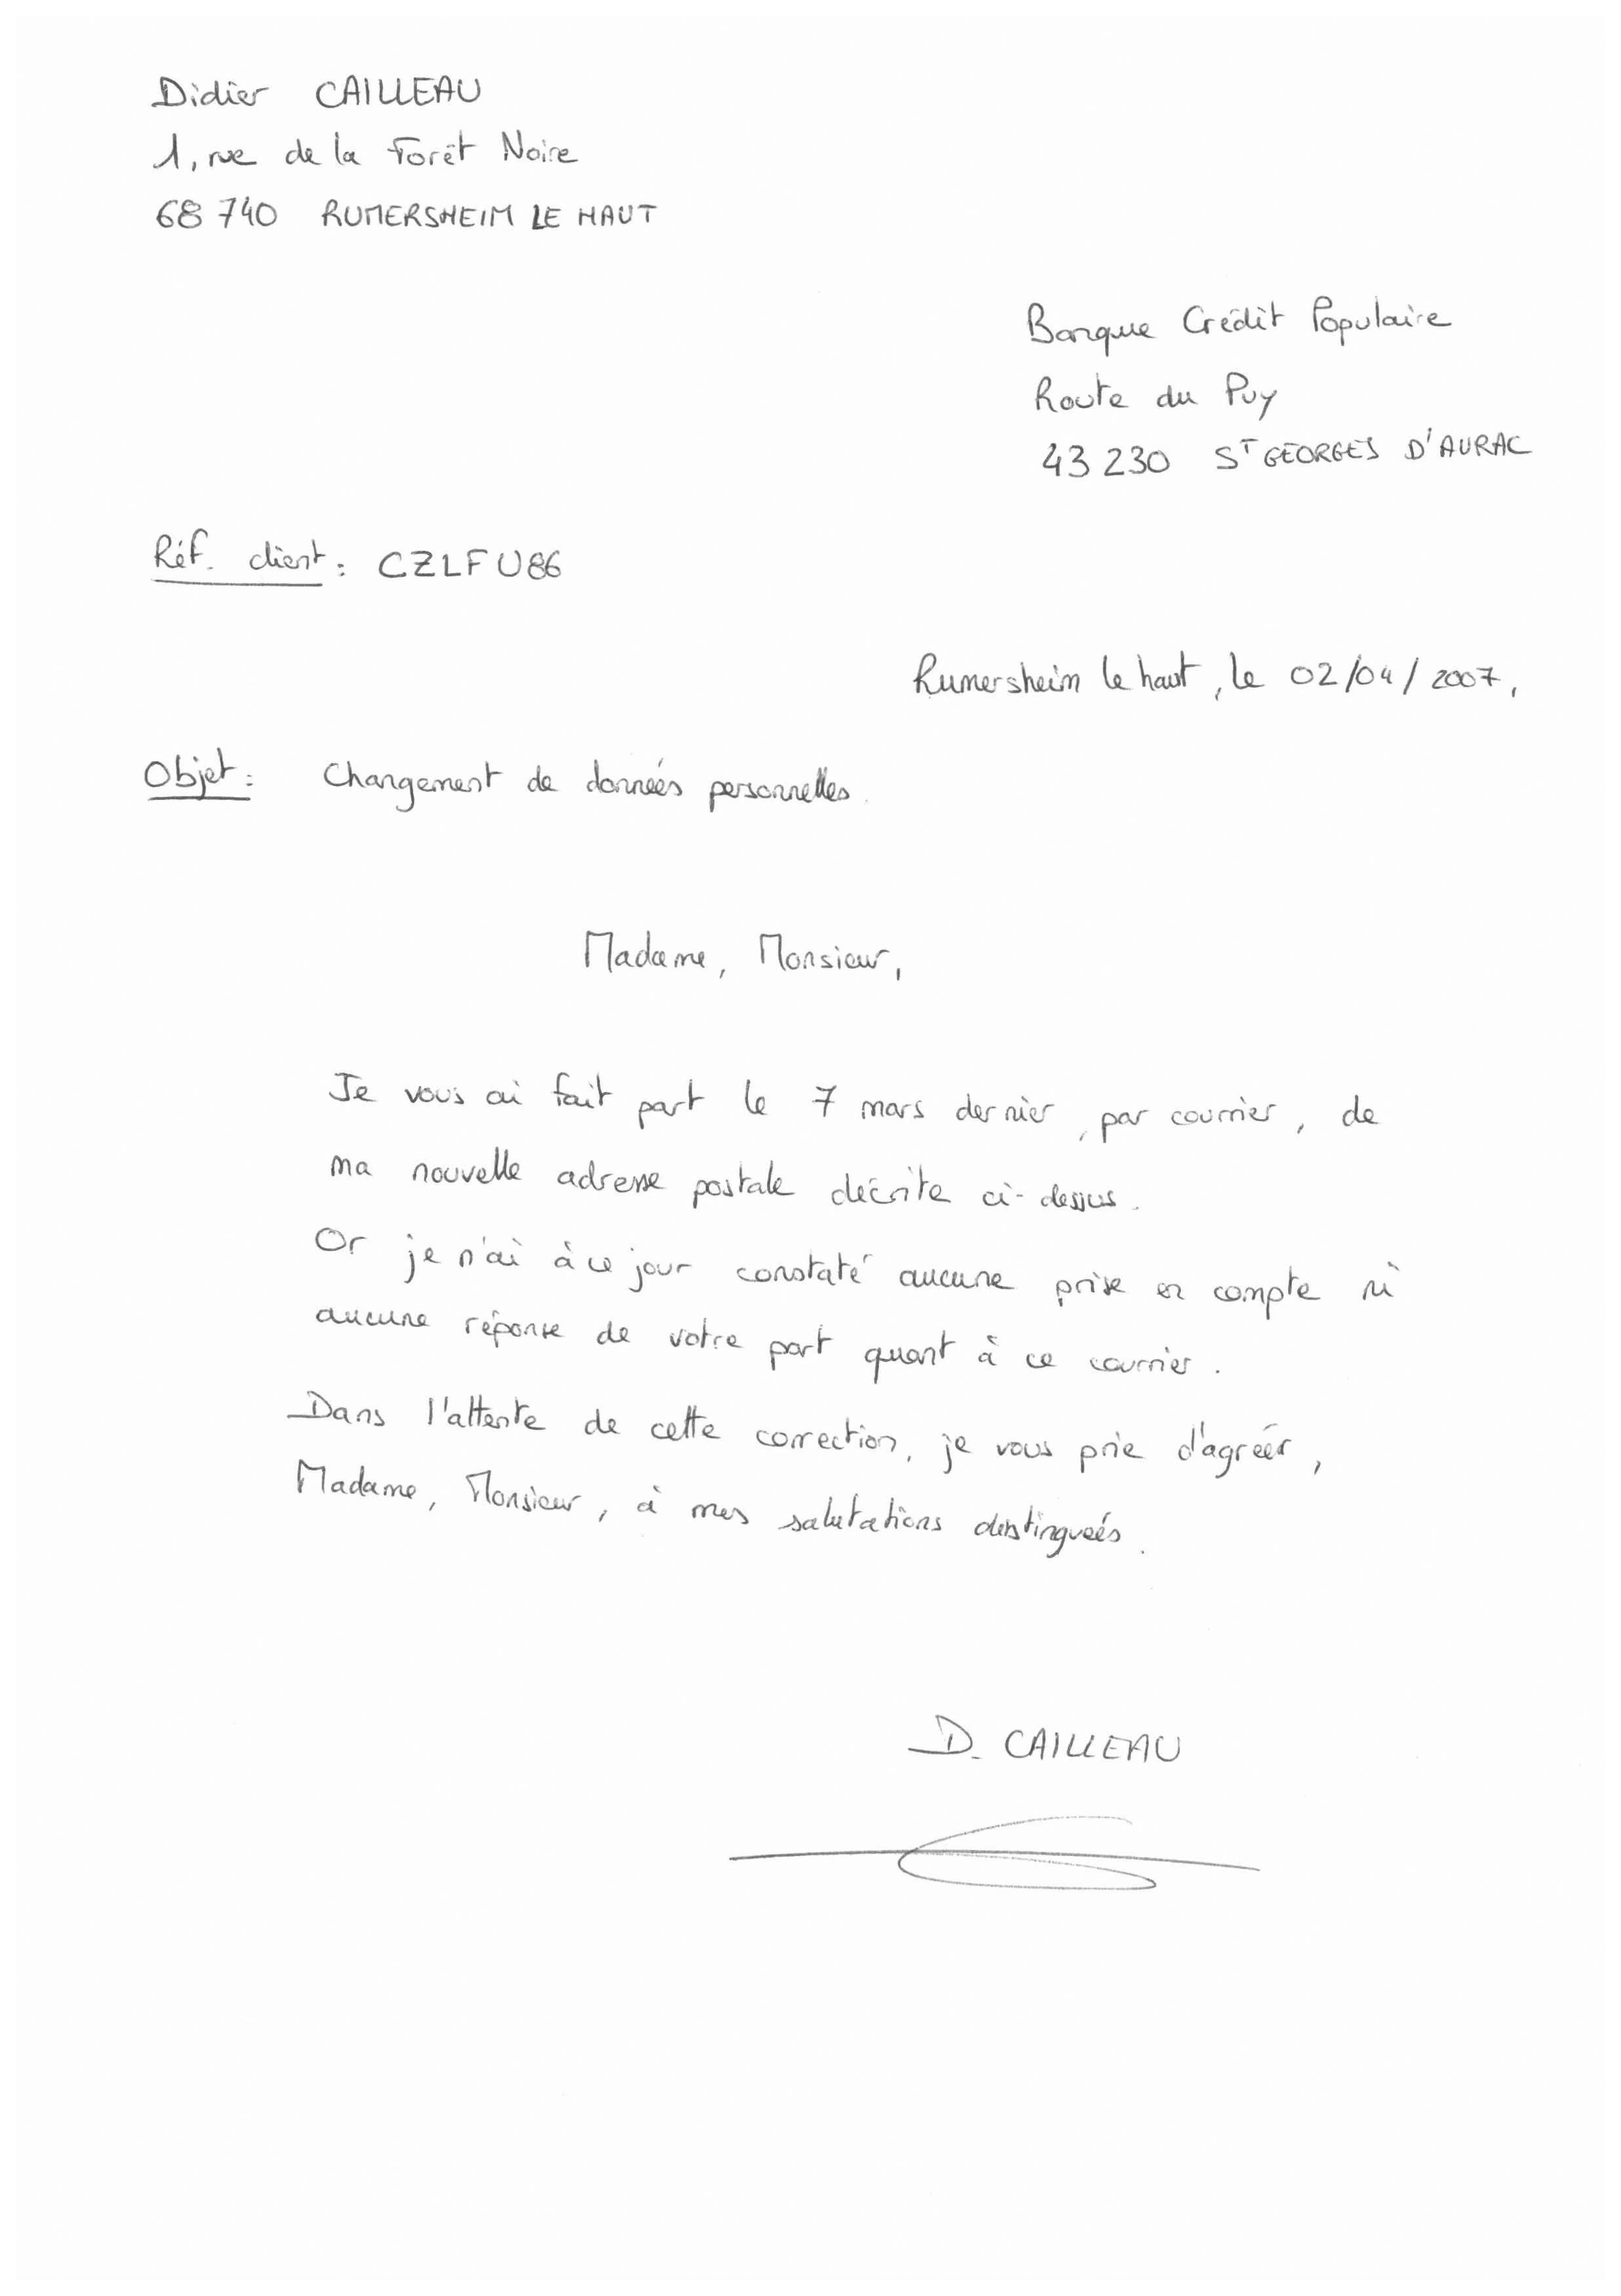 Didier CAILLEAU
1, rue de la Forêt Noire
68 740 RUMERSHEIM LE HAUT
Banque Crédit Populaire
Route du Puy
43 230 ST GEORGES D'AURAC
Réf. client : CZLFU86
Rumersheim le haut, le 02/04/2007,
Objet : Changement de données personnelles.
Madame, Monsieur,
Je vous ai fait part le 7 mars dernier, par courrier, de
ma nouvelle adresse postale décrite ci-dessus.
Or je n'ai à ce jour constaté aucune prise en compte ni
aucune réponse de votre part quant à ce courrier.
Dans l'attente de cette correction, je vous prie d'agréer,
Madame, Monsieur, à mes salutations distinguées.
D. CAILLEAU